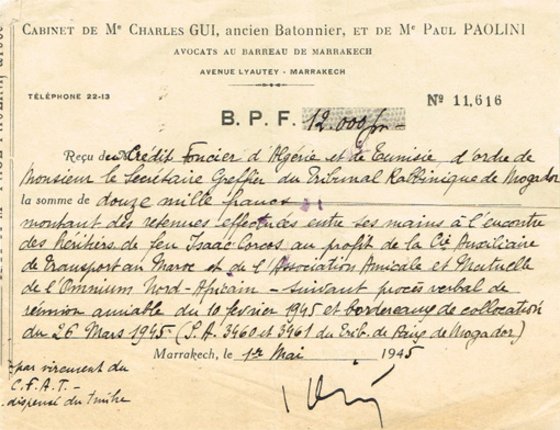 CABINET DE Me CHARLES GUI, ancien Batonnier, ET DE Me PAUL PAOLINI
AVOCATS AU BARREAU DE MARRAKECH
AVENUE LYAUTEY - MARRAKECH
TÉLÉPHONE 22-13
No 11,616
B. P. F. 12.000 frs
Reçu du Crédit Foncier d'Algérie et de Tunisie, d'ordre de
Monsieur le Secrétaire Greffier du Tribunal Rabbinique de Mogador
la somme de douze mille francs
montant des retenues effectuées entre ses mains à l'encontre
des héritiers de feu Isaac Corcos au profit de la Cie Auxiliaire
de Transport au Maroc et de l'Association Amicale et Mutuelle
de l'Omnium Nord-Africain - suivant procès verbal de
réunion amiable du 10 février 1945 et bordereau de collocation
du 26 Mars 1945 (S.A. 3460 et 3461 du Trib. de Paix de Mogador)
Marrakech, le 1er Mai 1945
par virement du
C.F.A.T. -
dispensé du timbre